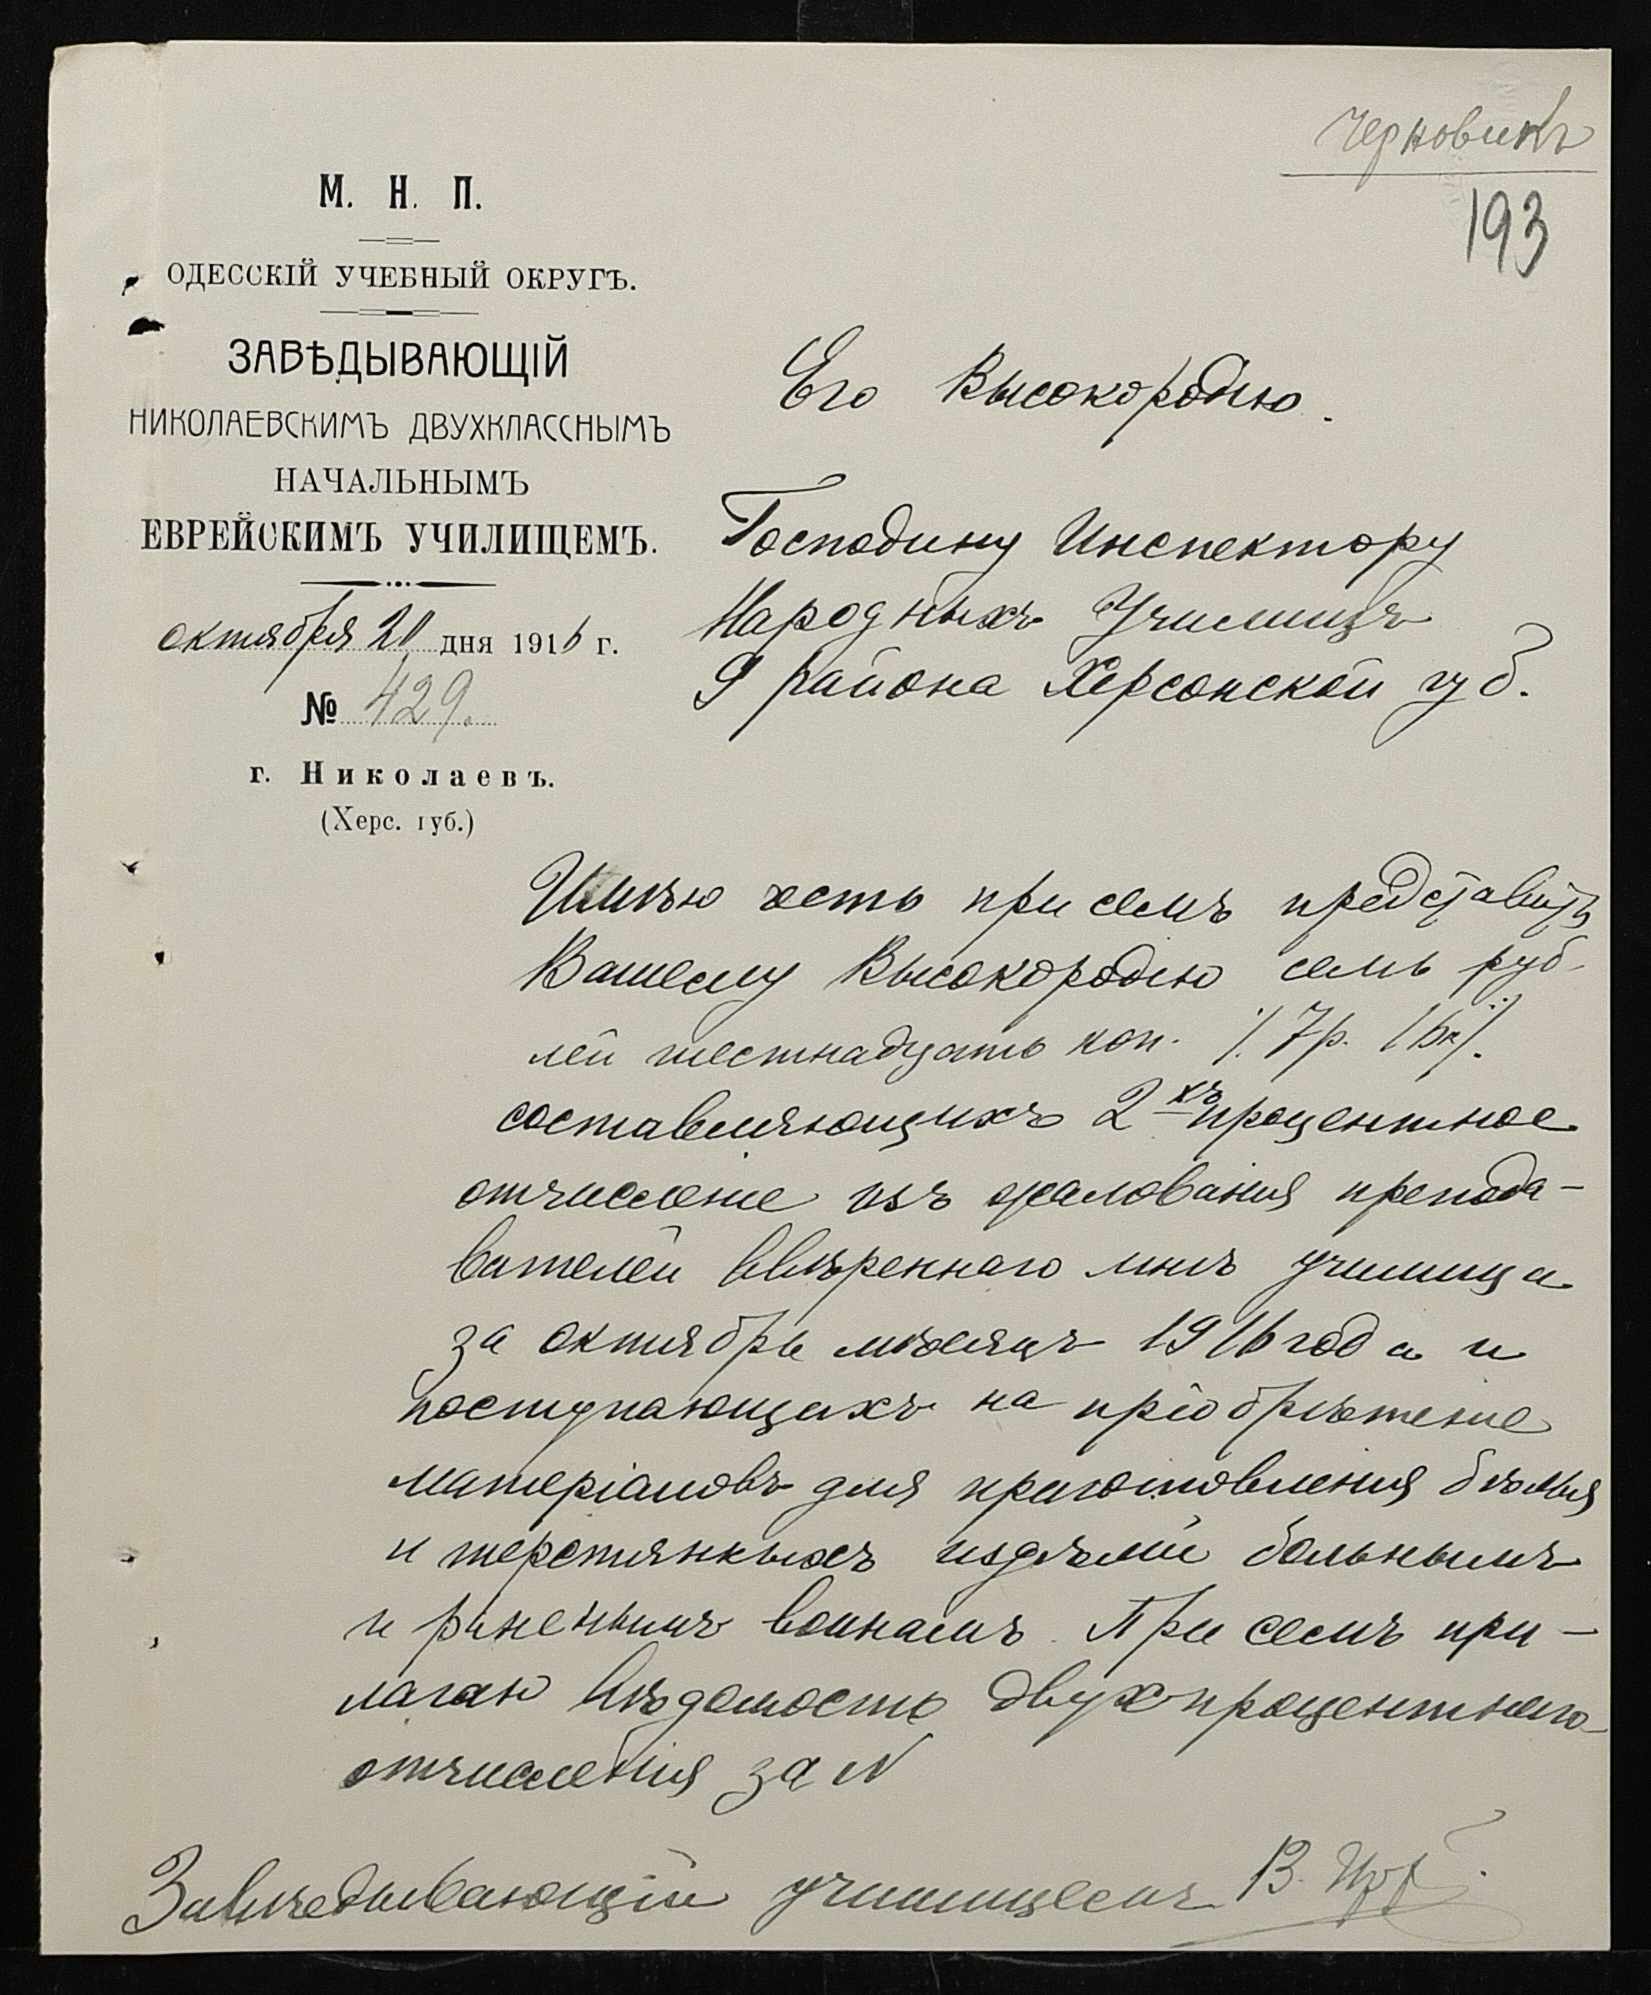 Черновикъ
193
М. Н. П.
ОДЕССКІЙ УЧЕБНЫЙ ОКРУГЪ.
ЗАВѢДЫВАЮЩІЙ
НИКОЛАЕВСКИМЪ ДВУХКЛАССНЫМЪ
НАЧАЛЬНЫМЪ
ЕВРЕЙСКИМЪ УЧИЛИЩЕМЪ.
октября 20 дня 1916 г.
№ 429.
г. Николаевъ.
(Херс. губ.)
Его Высокородію.
Господину Инспектору
Народныхъ Училищъ
9 района Херсонской губ.
Имѣю честь при семъ представить
Вашему Высокородію семь руб-
лей шестнадцать коп. /. 7р. 16к /.
составляющихъ 2хъ процентное
отчисленіе изъ жалованія препода-
вателей ввѣреннаго мнѣ училища
за октябрь мѣсяцъ 1916 года и
поступающихъ на пріобрѣтеніе
матеріаловъ для приготовленія бѣлья
и шерстянныхъ издѣлій больнымъ
и раненымъ воинамъ. При семъ при-
лагаю вѣдомость двухпроцентнаго
отчисленія за N
Завѣдывающій училищемъ В.